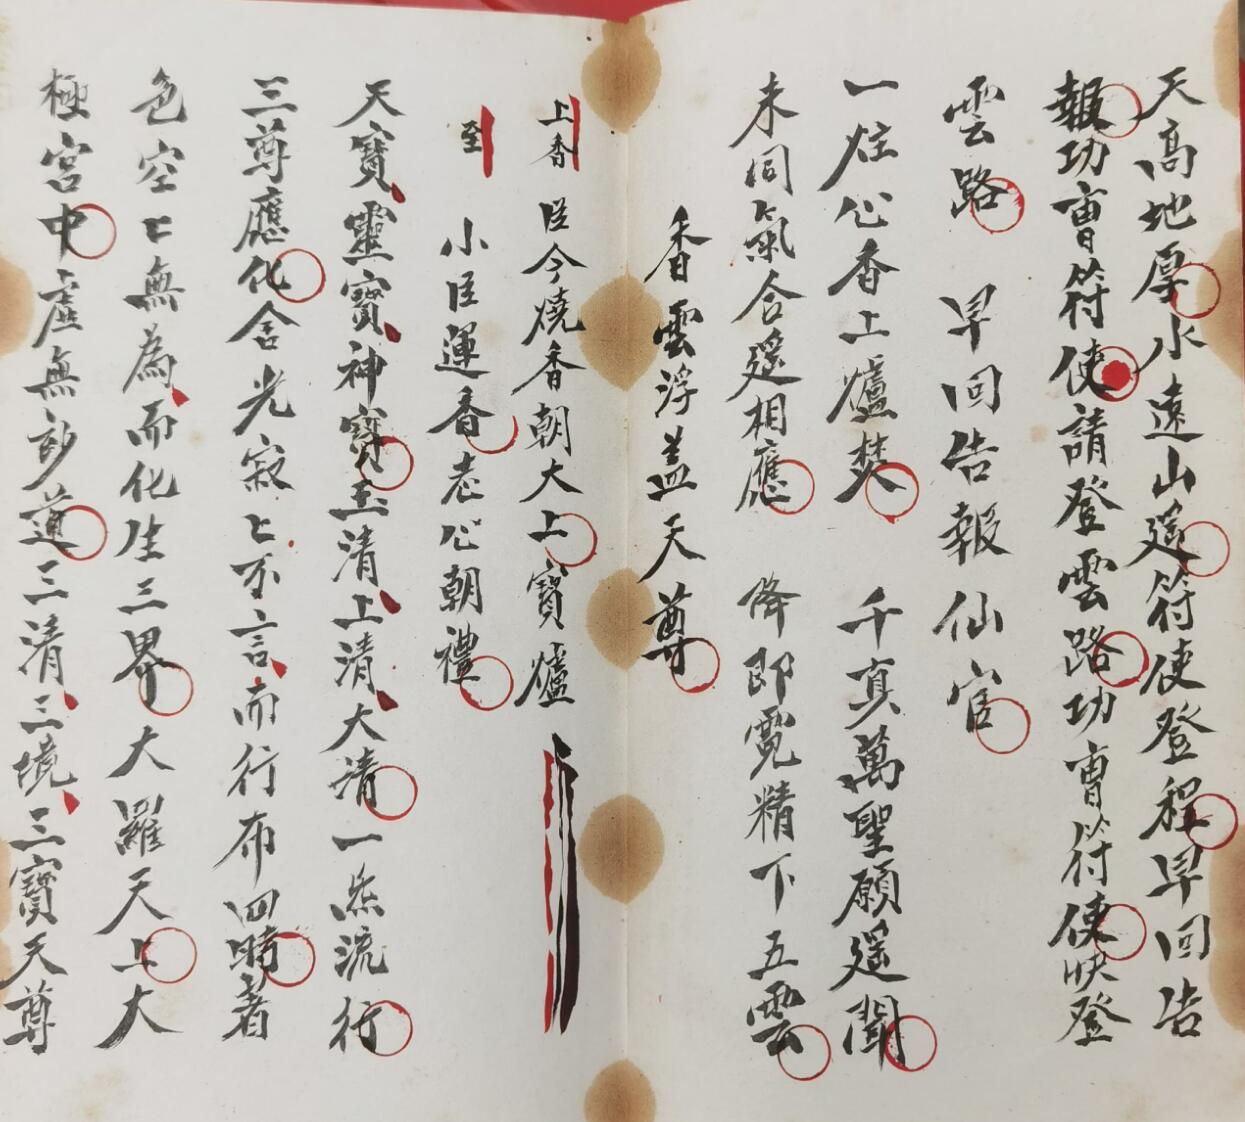 天高地厚水遠山遥符使登程早回告
報功曹符使請登雲路功曹符使快登
雲路 早回告報仙官
一炷心香上爐焚 千真萬聖願遥聞
未同氣合遥相應 降即霓精下五雲
香雲浮盖天尊
上香 臣今燒香朝大上寶爐
至 小臣運香老心朝禮
天寶靈寶神寳玉清上清大清一炁流行
三尊應化含光寂匕不言而行布四時者
色空匕無為而化生三界大羅天上大
極宮中虛無妙道三清三境三寶天尊